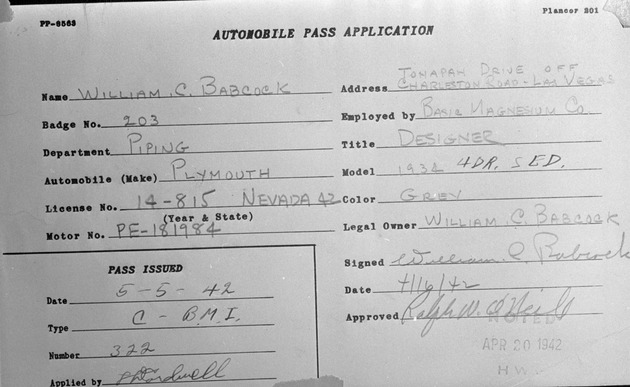 PP-6563
Plancor 201
AUTOMOBILE PASS APPLICATION
Name WILLIAM C. BABCOCK
Address TONAPAH DRIVE OFF
CHARLESTON ROAD - LAS VEGAS
Badge No. 203
Employed by BASIC MAGNESIUM CO.
Department PIPING
Title DESIGNER
Automobile (Make) PLYMOUTH
Model 1934 4DR. SED.
License No. 14-815 NEVADA 42
(Year & State)
Color GREY
Motor No. PE-181984
Legal Owner WILLIAM C. BABCOCK
Signed William C. Babcock
PASS ISSUED
Date 5-5-42
Type C - B.M.I.
Number 322
Applied by
Date 4/16/42
Approved Ralph W. O'Neill
NOTED
APR 20 1942
H.W.